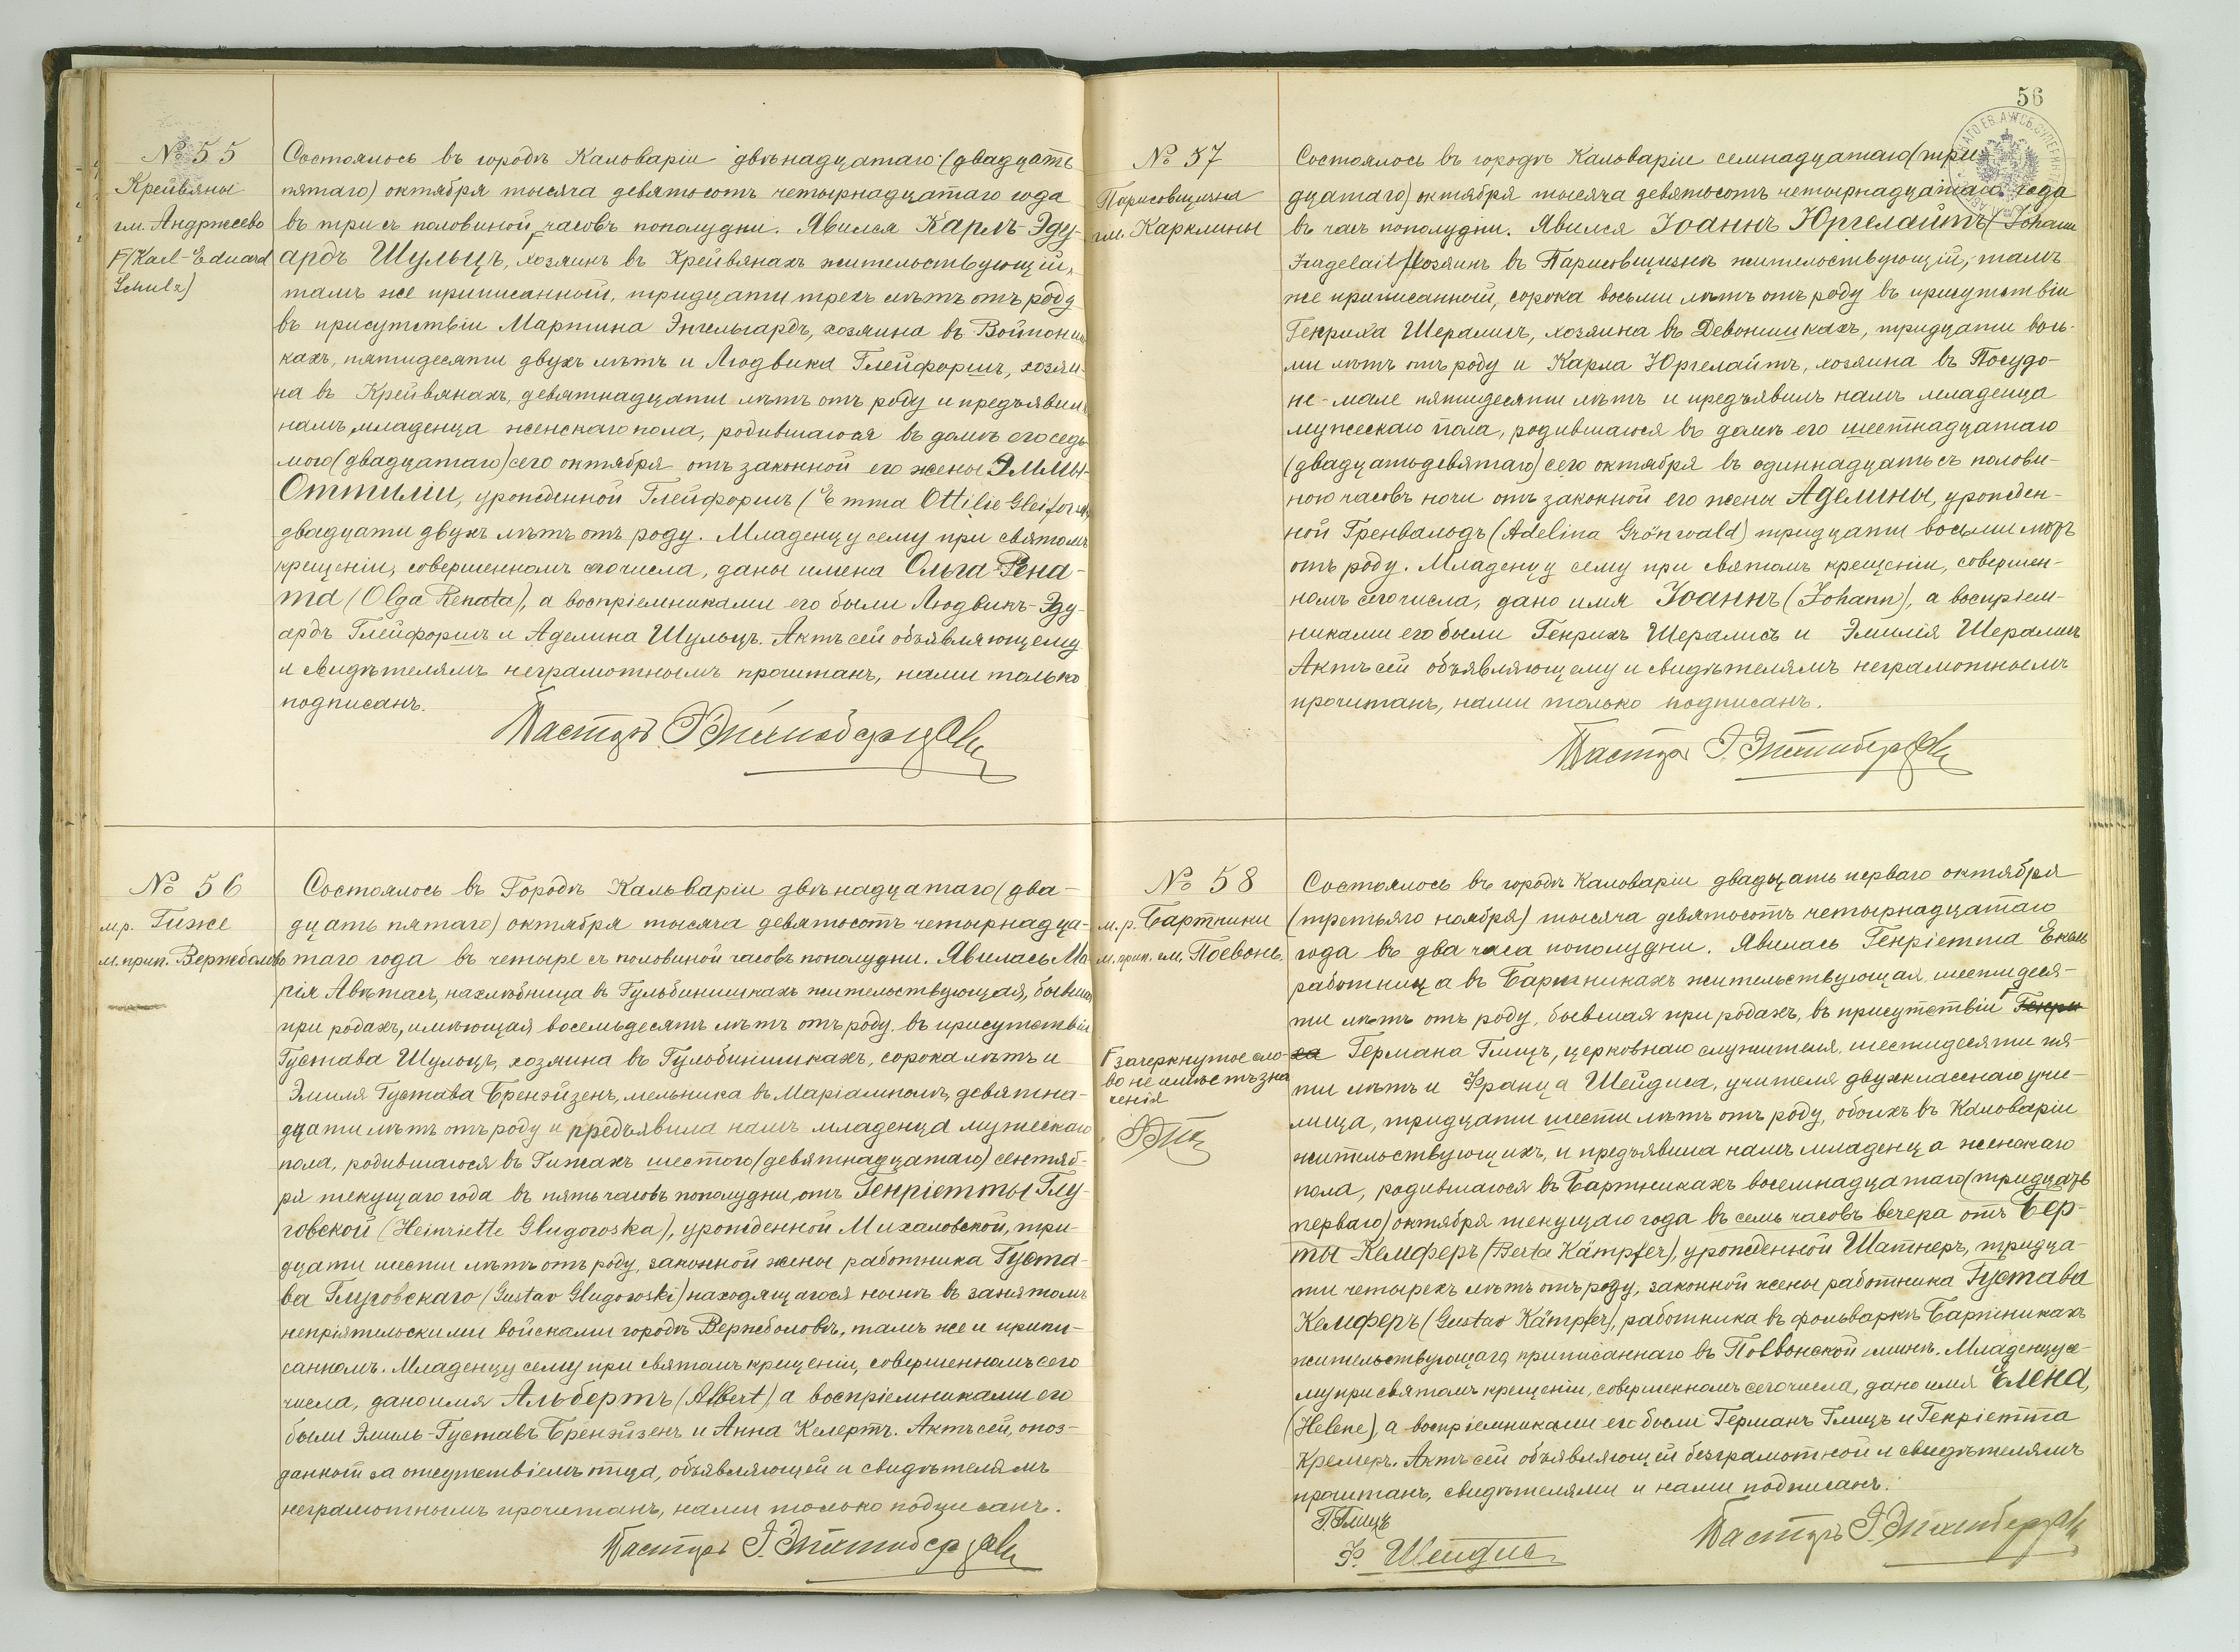 № 55
Крейвяны
гм. Андржеево
Г(Karl-Eduard
Schulz)
Состоялось въ городѣ Кальваріи двѣнадцатаго (двадцать
пятаго) октября тысяча девятьсотъ четырнадцатаго года
въ три съ половиной часовъ пополудни. Явился Карлъ-Эду-
ардъ Шульцъ,Г хозяинъ въ Крейвянахъ жительствующій,
тамъ же приписанный, тридцати трехъ лѣтъ отъ роду
въ присутствіи Мартина Энгельгардъ, хозяина въ Войтониш-
кахъ, пятидесяти двухъ лѣтъ и Людвика Глейфоршъ, хозяи-
на въ Крейвянахъ, девятнадцати лѣтъ отъ роду и предъявилъ
намъ младенца женскаго пола, родившагося въ домѣ его седь-
мого (двадцатаго) сего октября отъ законной его жены Эммы-
Оттиліи, урожденной Глейфоршъ (Emma Ottilie Gleiforsch)
двадцати двухъ лѣтъ отъ роду. Младенцу сему при святомъ
крещеніи, совершенномъ сего числа, даны имена Ольга-Рена-
та (Olga Renata), а воспріемниками его были Людвикъ-Эду-
ардъ Глейфоршъ и Аделина Шульцъ. Актъ сей объявляющему
и свидѣтелямъ неграмотнымъ прочитанъ, нами только
подписанъ.
Пасторъ
№ 56
м.р. Гиже
м.прип. Вержболово
Состоялось въ Городѣ Кальваріи двѣнадцатаго (два-
дцать пятаго) октября тысяча девятьсотъ четырнадца-
таго года въ четыре съ половиной часовъ пополудни. Явилась Ма-
рія Аветасъ, нахлѣбница въ Гульбинишкахъ жительствующая, бывшая
при родахъ, имѣющая восемьдесятъ лѣтъ отъ роду, въ присутствіи
Густава Шульцъ, хозяина въ Гульбинишкахъ, сорока лѣтъ и
Эмиля Густава Бренэйзенъ, мельника въ Маріамполѣ, девятна-
дцати лѣтъ отъ роду и предъявила намъ младенца мужескаго
пола, родившагося въ Гижахъ шестого (девятнадцатаго) сентяб-
ря текущаго года въ пять часовъ пополудни отъ Генріетты Глу-
говской (Heinriette Glugowska), урожденной Михаловской, три-
дцати шести лѣтъ отъ роду, законной жены работника Густа-
ва Глуговскаго (Gustav Glugowski) находящагося нынѣ въ занятомъ
непріятельскими войсками городѣ Вержболовѣ, тамъ же и припи-
санномъ. Младенцу сему при святомъ крещеніи, совершенномъ сего
числа, дано имя Альбертъ (Albert), а воспріемниками его
были Эмиль-Густавъ Бренэйзенъ и Анна Келертъ. Актъ сей, опоз-
данный за отсутствіемъ отца, объявляющей и свидѣтелямъ
неграмотнымъ прочитанъ, нами только подписанъ.
Пасторъ
56
№ 57
Парисовщизна
гм. Карклины
Состоялось въ городѣ Кальваріи семнадцатаго (три-
дцатаго) октября тысяча девятьсотъ четырнадцатаго года
въ часъ пополудни. Явился Іоаннъ Юргелайтъ (Johann
Jurgelait) хозяинъ въ Парисовщизнѣ жительствующій, тамъ
же приписанный, сорока восьми лѣтъ отъ роду въ присутствіи
Генриха Шералисъ, хозяина въ Девонишкахъ, тридцати вось-
ми лѣтъ отъ роду и Карла Юргелайтъ, хозяина въ Посудо-
не-мале пятидесяти лѣтъ и предъявилъ намъ младенца
мужескаго пола, родившагося въ домѣ его шестнадцатаго
(двадцатьдевятаго) сего октября въ одиннадцать съ полови-
ною часовъ ночи отъ законной его жены Аделины, урожден-
ной Гренвальдъ (Adelina Grönwald) тридцати восьми лѣтъ
отъ роду. Младенцу сему при святомъ крещеніи, совершен-
номъ сего числа, дано имя Іоаннъ (Johann), а воспріем-
никами его были Генрихъ Шералисъ и Эмилія Шералисъ
Актъ сей объявляющему и свидѣтелямъ неграмотнымъ
прочитанъ, нами только подписанъ.
Пасторъ
№ 58
м.р. Бартники
м.прип. гм. Поевонь
Г зачеркнутое сло-
во не имѣетъ зна
ченія
Состоялось въ городѣ Кальваріи двадцать перваго октября
(третьяго ноября) тысяча девятьсотъ четырнадцатаго
года въ два часа пополудни. Явилась Генріетта Экель
работница въ Бартникахъ жительствующая, шестидеся-
ти лѣтъ отъ роду, бывшая при родахъ, въ присутствіиГ Генри
ха Германа Глицъ, церковнаго служителя, шестидесяти пя-
ти лѣтъ и Франца Шейдиса, учителя двухкласснаго учи-
лища, тридцати шести лѣтъ отъ роду, обоихъ въ Кальваріи
жительствующихъ, и предъявила намъ младенца женскаго
пола, родившагося въ Бартникахъ восемнадцатаго (тридцать
перваго) октября текущаго года въ семь часовъ вечера отъ Бер-
ты Кемферъ (Berta Kämpfer), урожденной Шатнеръ, тридца-
ти четырехъ лѣтъ отъ роду, законной жены работника Густава
Кемферъ (Gustav Kämpfer), работника въ фольваркѣ Бартникахъ
жительствующаго, приписаннаго въ Поевонской гминѣ. Младенцу се-
му при святомъ крещеніи, совершенномъ сего числа, дано имя Елена,
(Helene), а воспріемниками его были Германъ Глицъ и Генріетта
Кремеръ. Актъ сей объявляющей безграмотной и свидѣтелямъ
прочитанъ, свидѣтелями и нами подписанъ.
Г. Глицъ
Ф. Шейдис
Пасторъ